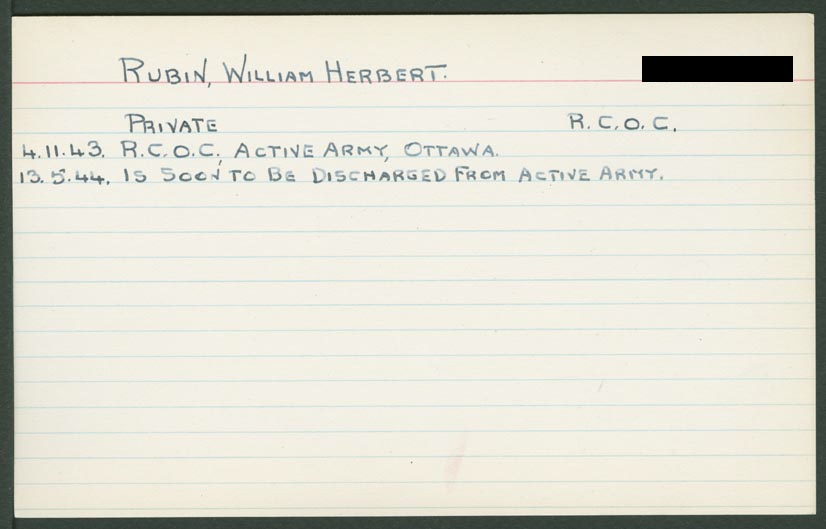 RUBIN, WILLIAM HERBERT.
PRIVATE R.C.O.C.
4.11.43. R.C.O.C., ACTIVE ARMY, OTTAWA.
13.5.44. IS SOON TO BE DISCHARGED FROM ACTIVE ARMY.